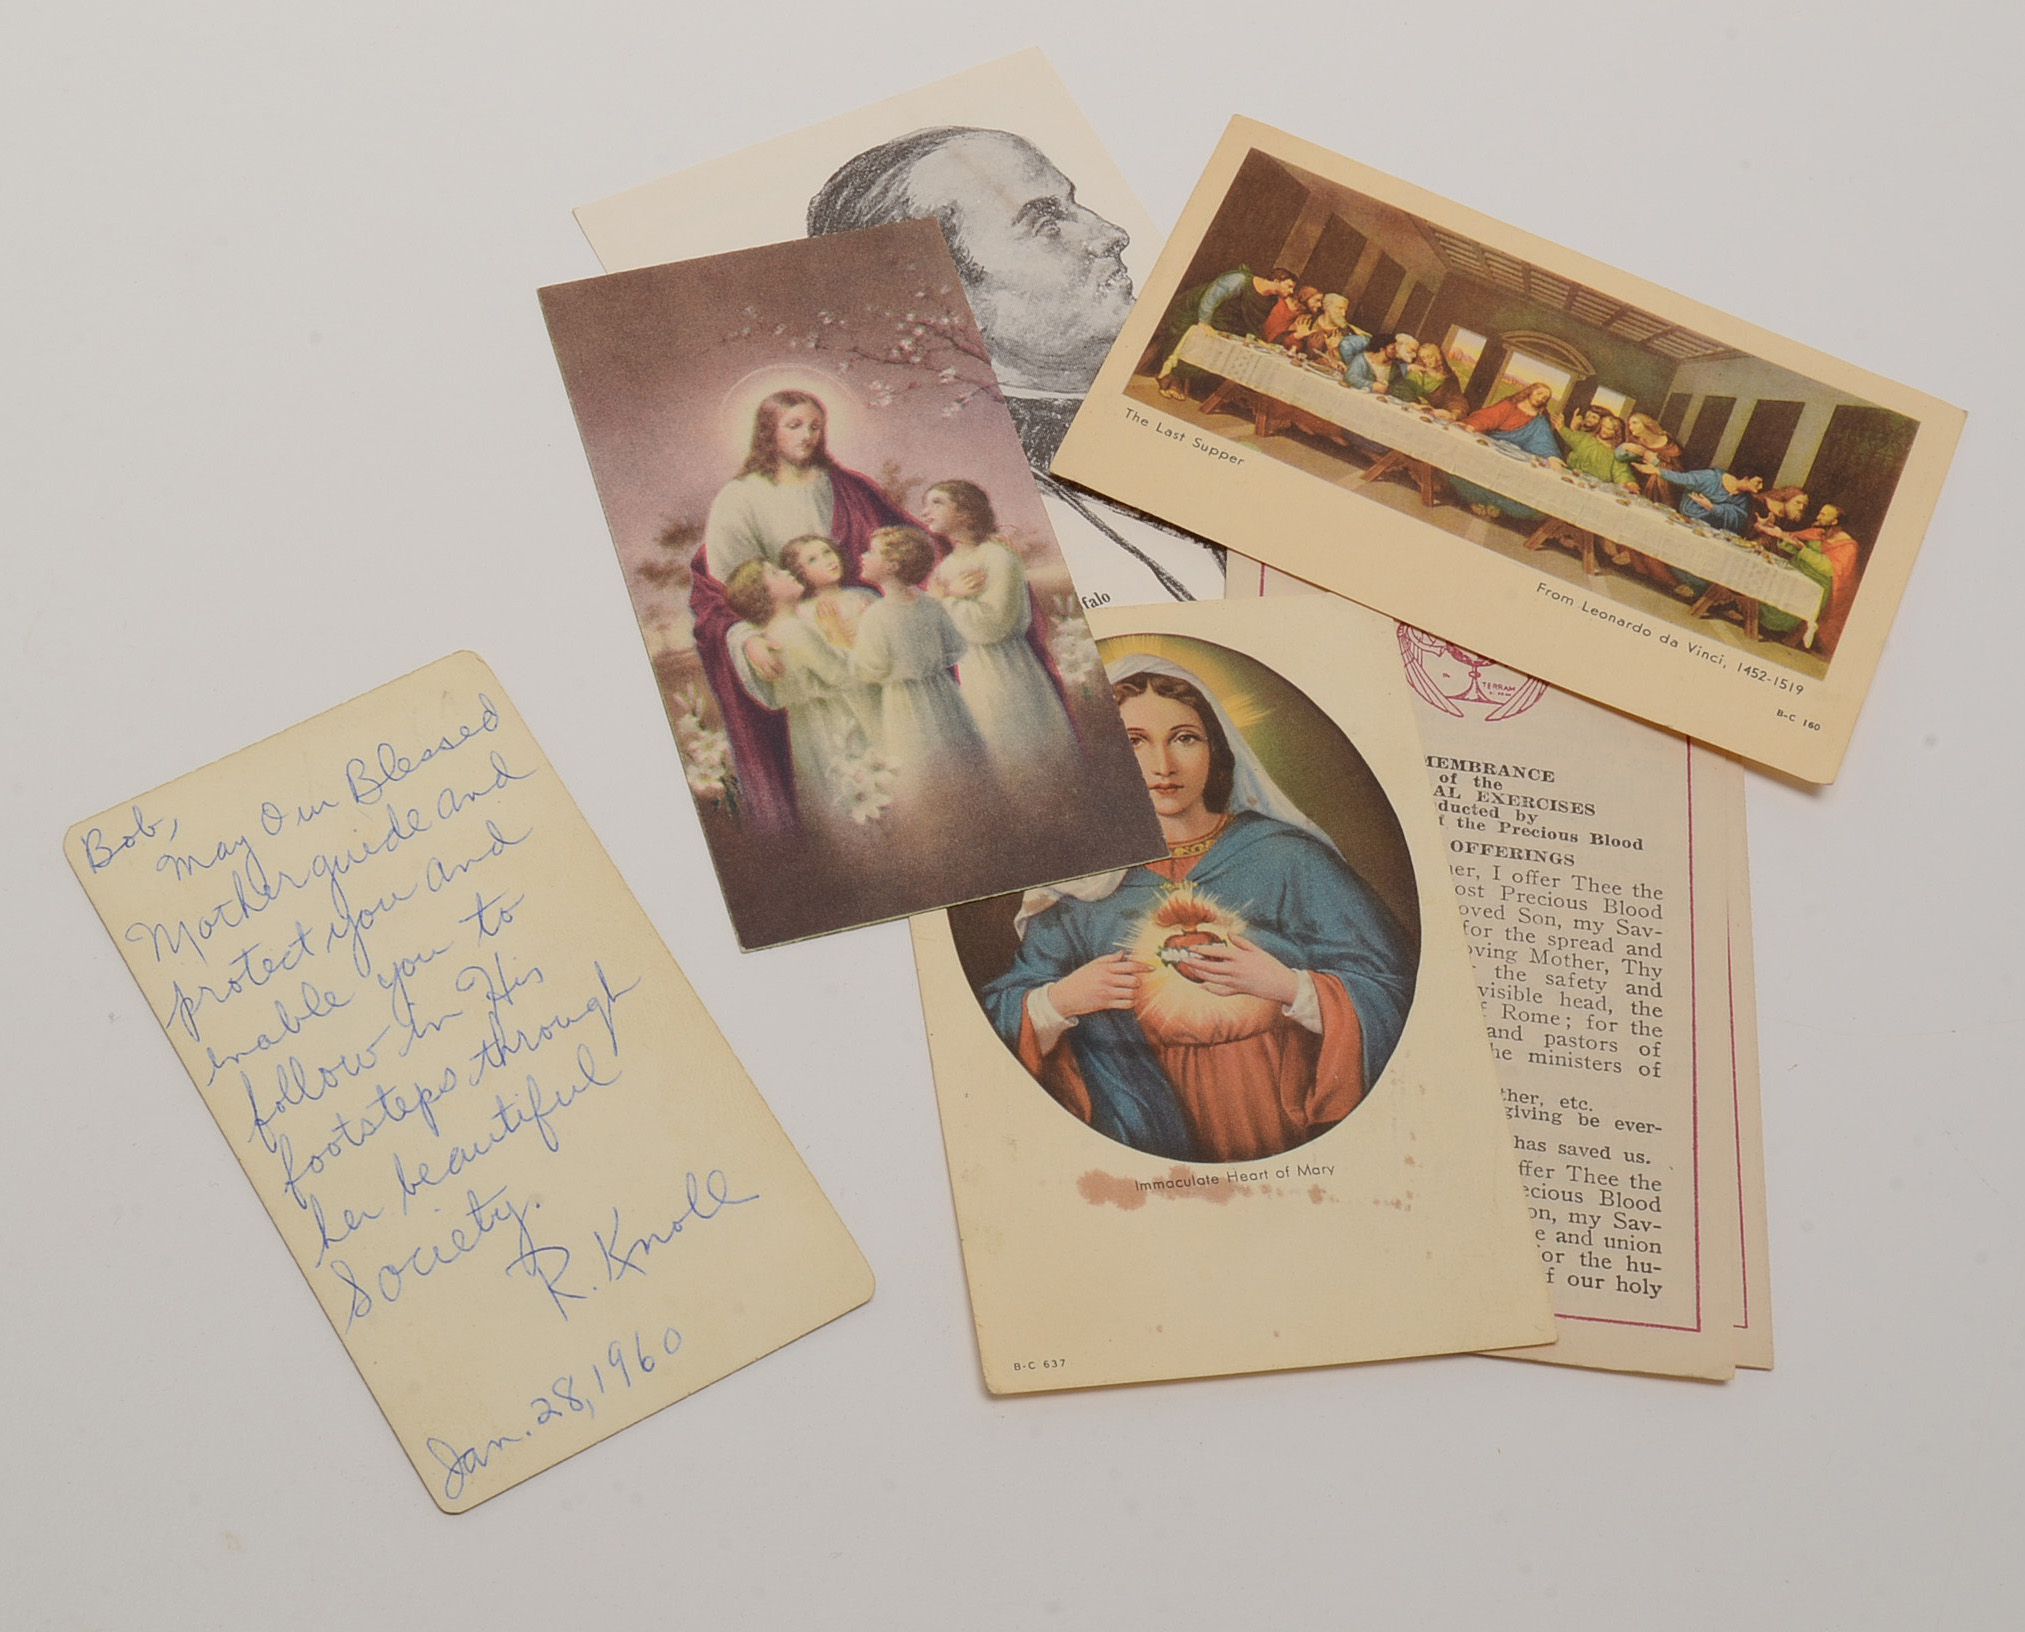 Bob,
May Our Blessed
Mother guide and
protect you and
enable you to
follow in His
footsteps through
her beautiful
Society.
R. Knoll
Jan. 28, 1960
falo
The Last Supper
From Leonardo da Vinci, 1452-1519
B-C 160
Immaculate Heart of Mary
B-C 637
TERRAM
MEMBRANCE
of the
AL EXERCISES
ducted by
f the Precious Blood
OFFERINGS
er, I offer Thee the
ost Precious Blood
oved Son, my Sav-
for the spread and
oving Mother, Thy
the safety and
visible head, the
f Rome; for the
and pastors of
he ministers of
ther, etc.
giving be ever-
has saved us.
ffer Thee the
ecious Blood
on, my Sav-
e and union
or the hu-
f our holy